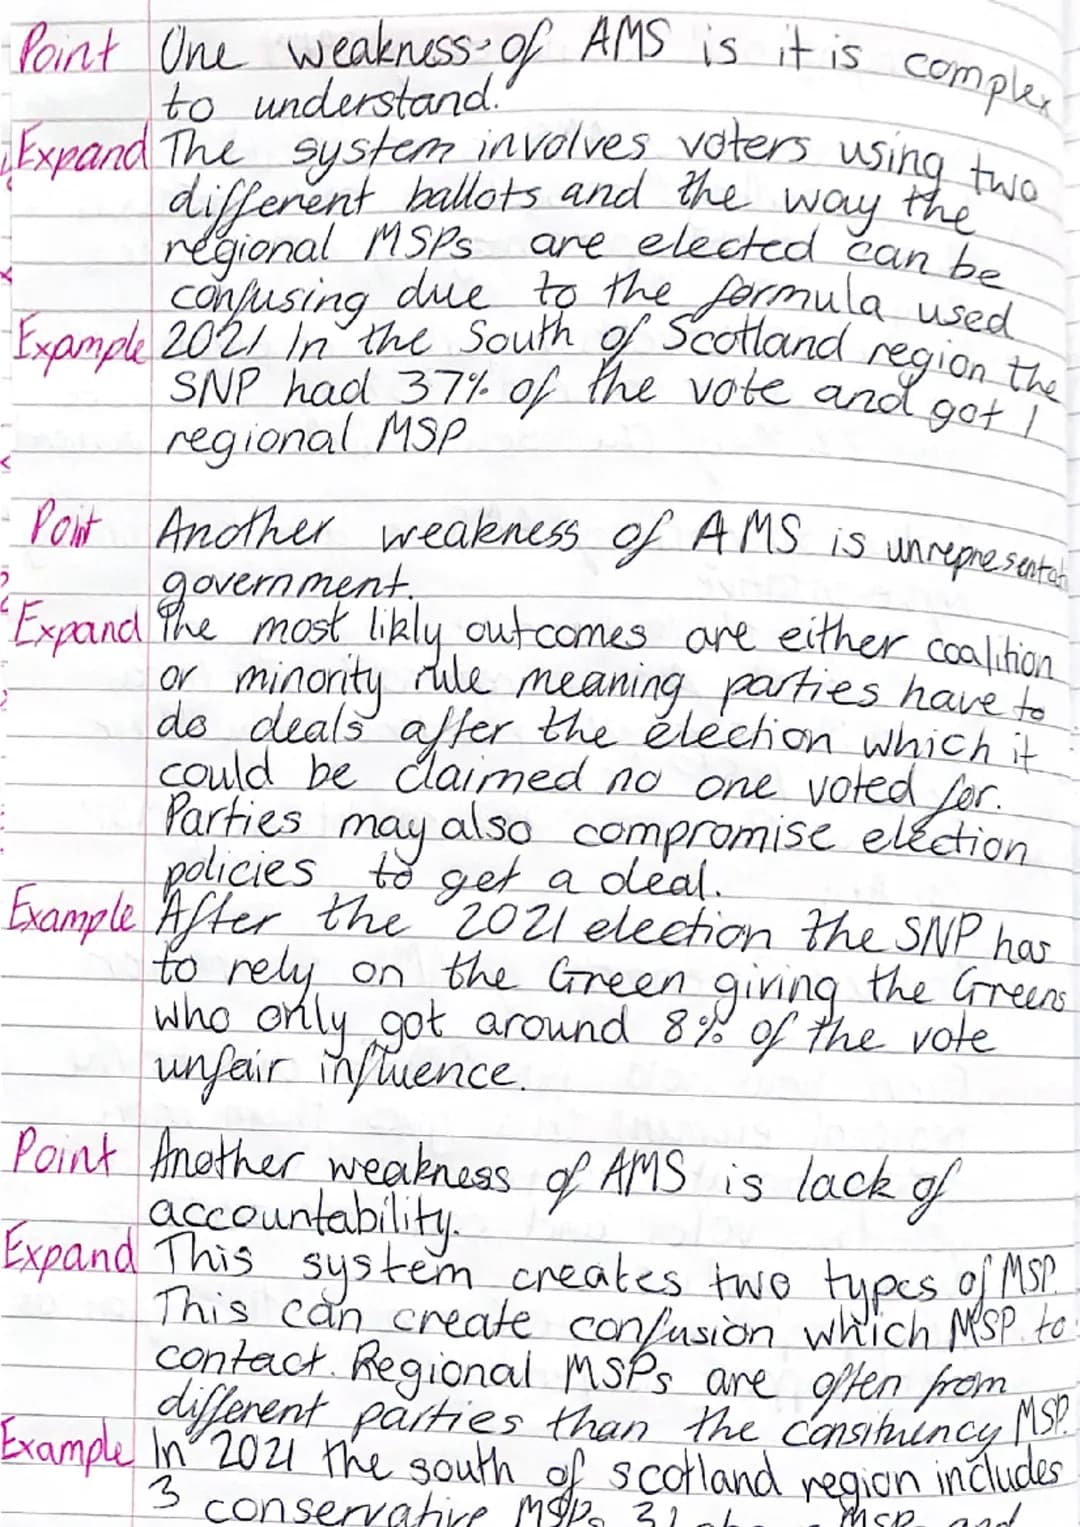 Point One weakness of AMS is it is complex
to understand.
Expand The system involves voters using two
different ballots and the way the
regional MSPs are elected can be
confusing due to the formula used
Example 2021 In the South of Scotland region the
SNP had 37% of the vote and got 1
regional MSP
Point Another weakness of AMS is unrepresentati
government.
Expand The most likly outcomes are either coalition
or minority rule meaning parties have to
do deals after the election which it
could be claimed no one voted for.
Parties may also compromise election
policies to get a deal.
Example After the 2021 election the SNP has
to rely on the Green giving the Greens
who only got around 8% of the vote
unfair influence.
Point Another weakness of AMS is lack of
accountability.
Expand This system creates two types of MSP.
This can create confusion which MSP to
contact. Regional MSPs are often from
different parties than the consituency MSP.
Example In 2021 the south of scotland region includes
3 conservative MSPs 3 MSP and